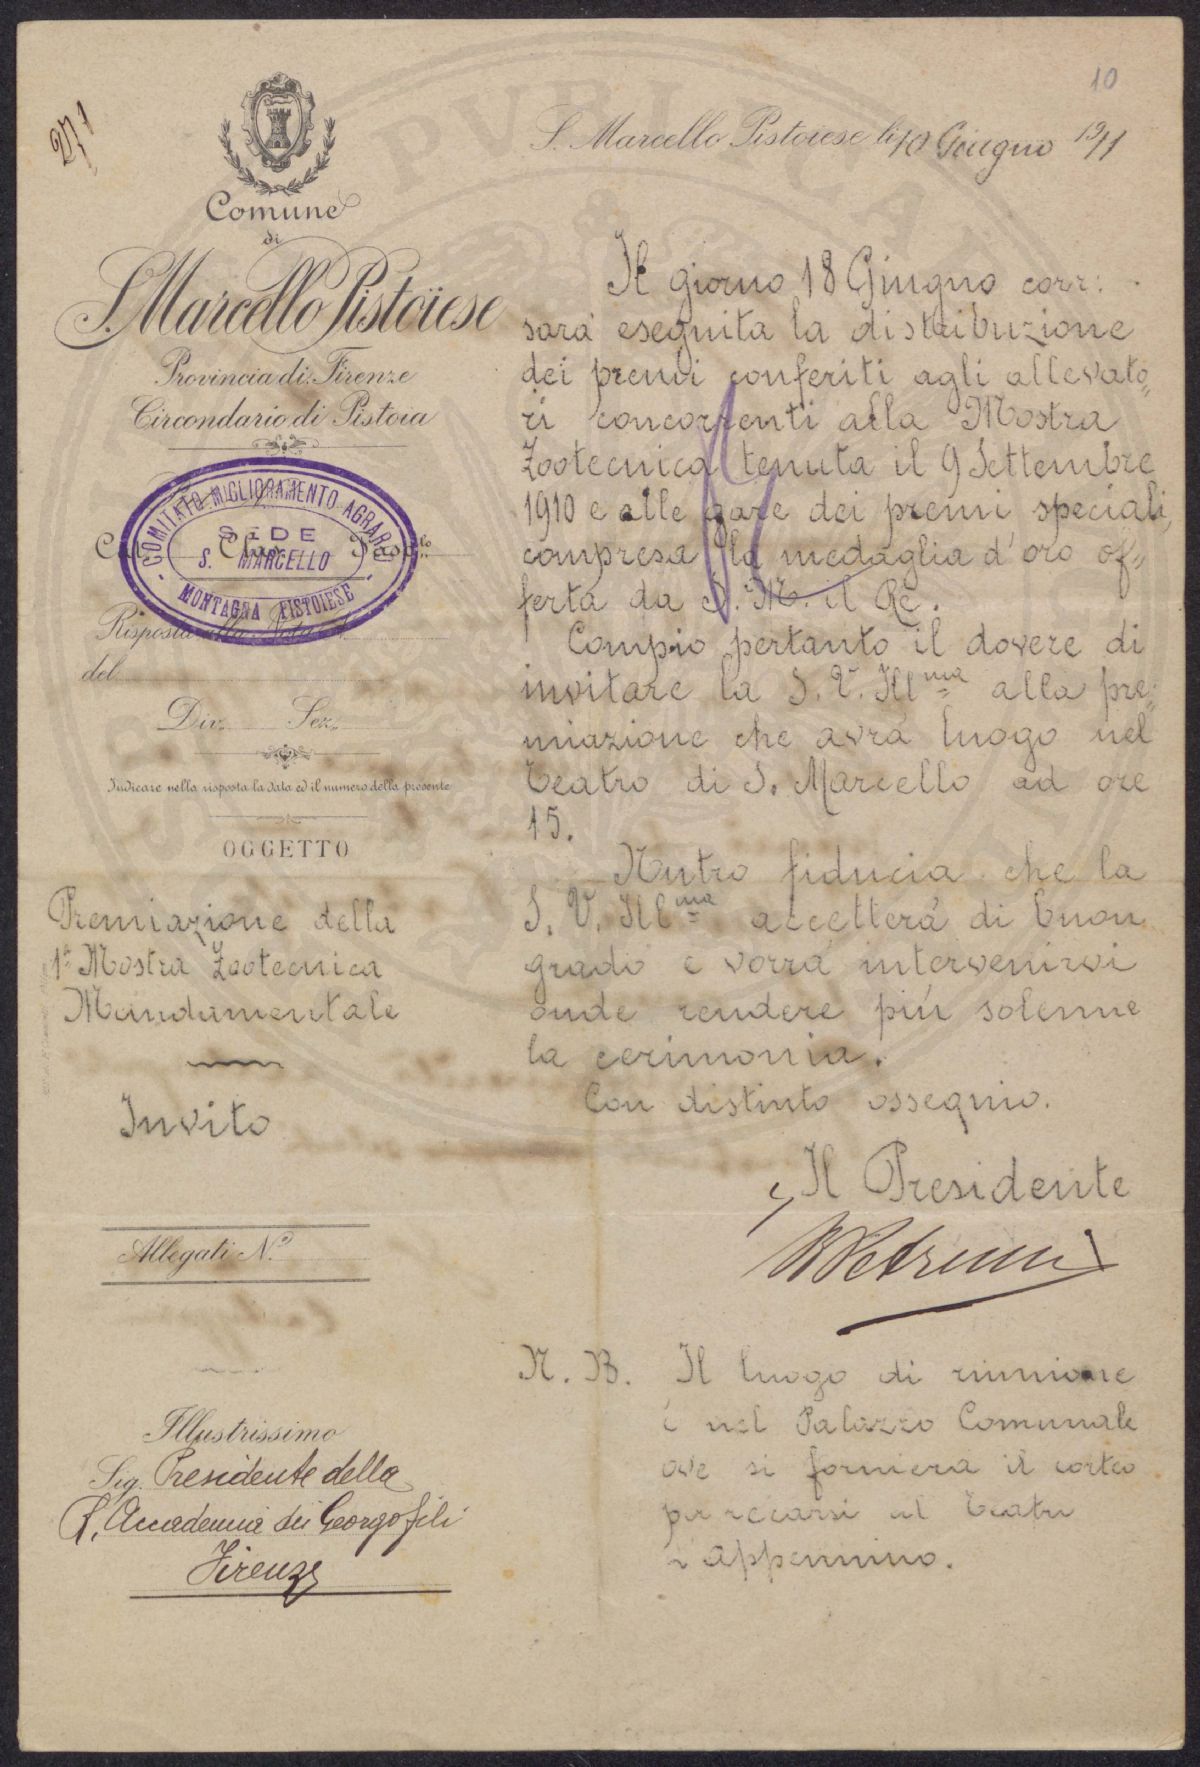 10
271
S. Marcello Pistoiese li 10 Giugno 1911
Comune
di
S. Marcello Pistoiese
Provincia di Firenze
Circondario di Pistoia
COMITATO MIGLIORAMENTO AGRARIO
SEDE
S. MARCELLO
MONTAGNA PISTOIESE
Risposta alla Nota
del
Div. Sez.
Indicare nella risposta la data ed il numero della presente
OGGETTO
Premiazione della
1ª Mostra Zootecnica
Mandamentale
Invito
Allegati N.º
Illustrissimo
Sig. Presidente della
R. Accademia dei Georgofili
Firenze
Il giorno 18 Giugno corr:
sarà eseguita la distribuzione
dei premi conferiti agli allevato=
ri concorrenti alla Mostra
Zootecnica tenuta il 9 Settembre
1910 e alle gare dei premi speciali,
compresa la medaglia d'oro of=
ferta da S. M. il Re.
Compio pertanto il dovere di
invitare la S. V. Ill.ma alla pre=
miazione che avrà luogo nel
teatro di S. Marcello ad ore
15.
Nutro fiducia che la
S. V. Ill.ma accetterà di buon
grado e vorrà intervenirvi
onde rendere più solenne
la cerimonia.
Con distinto ossequio.
Il Presidente
N. B. Il luogo di riunione
è nel Palazzo Comunale
ove si formerà il corteo
per recarsi al Teatro
Appennino.